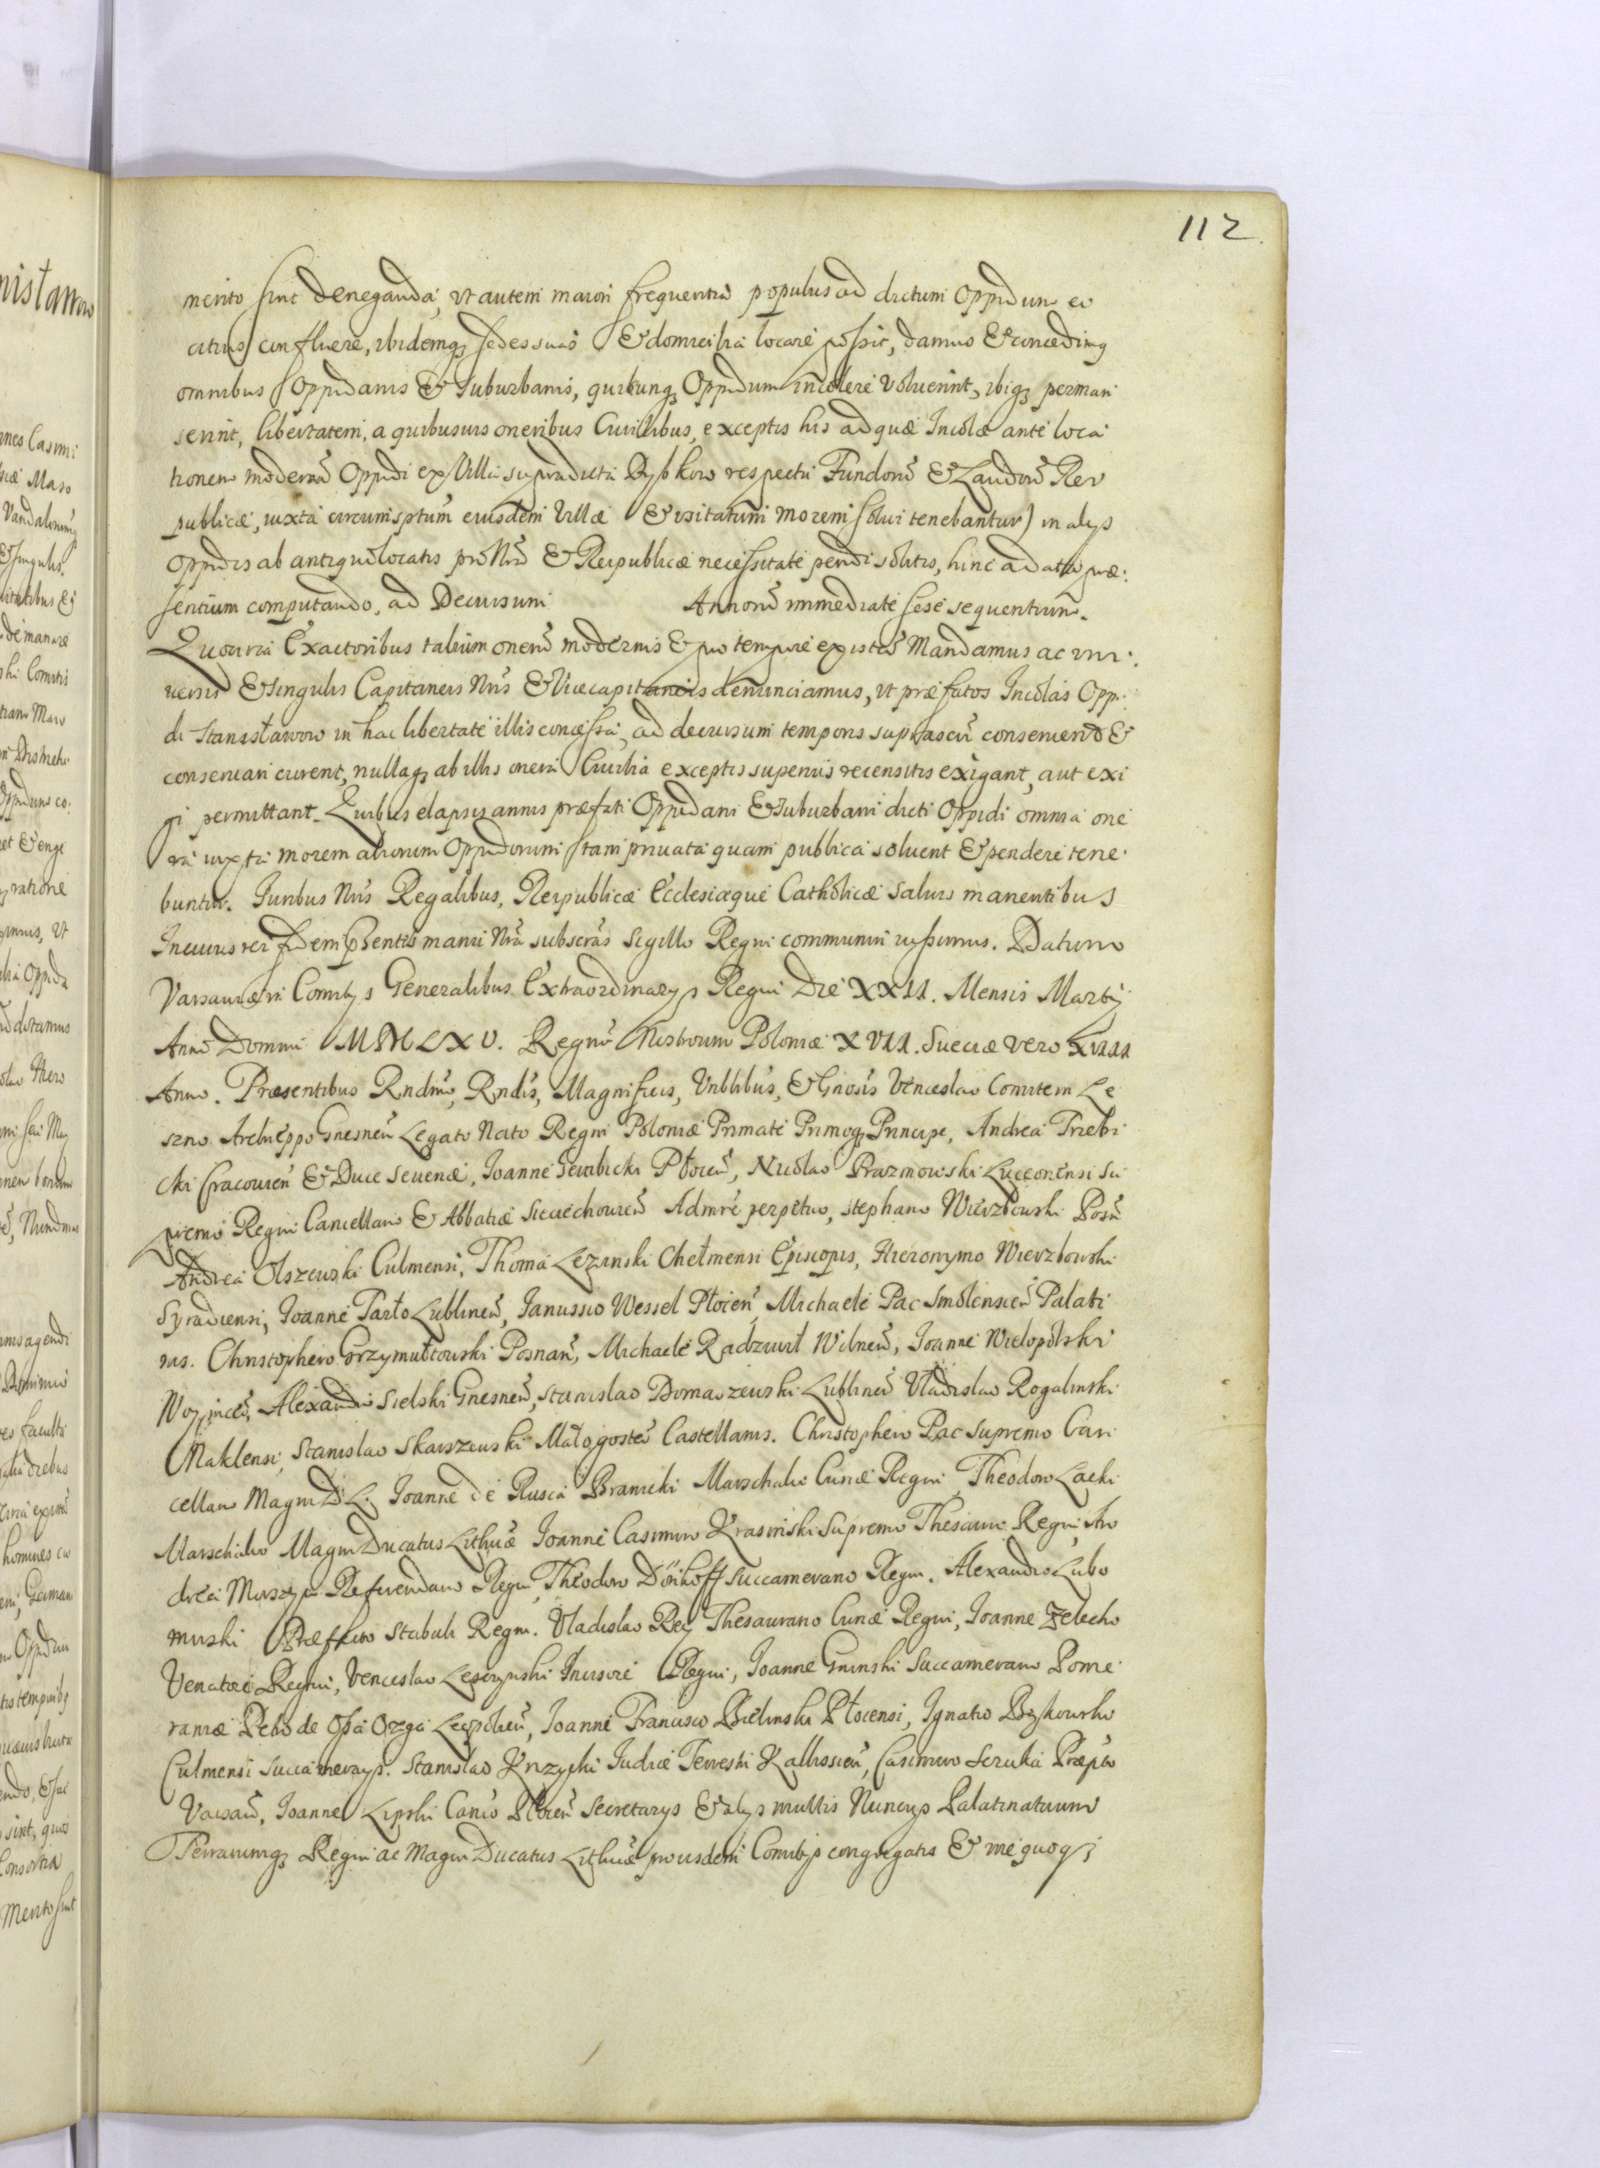 112
merito sint deneganda, ut autem maiori frequentia populus ad dictum Oppidum eo
citius confluere, ibidemq3 sedes suas & domicilia locare possit, damus & concedimq
omnibus Oppidanis & Suburbanis, quicunq3 Oppidum incolere voluerint, ibiq3 perman
serint, libertatem, a quibusvis oneribus Civilibus, exceptis his ad quæ Incolæ ante loca
tionem modernã Oppidi ex Villa supradicta respectu Fundorũ & Laudorũ Rei
publicæ, iuxta circumsptum eiusdem Villæ & usitatum morem solvi tenebantur) in alys
Oppidis ab antiquo locatis pro Nrã & Reipublicæ necessitate pendi solitis, hinc ad actu præ:
sentium computando, ad Decursum Annorũ immediate sese sequentium.
Quocirca Exactoribus talium onerũ modernis & pro tempore existen Mandamus ac uni:
versis & singulis Capitaneis Nris & Vicecapitaneis denunciamus, ut præfatos Incolas Oppi:
di Stanisławow in hac libertate illis concessa, ad decursum temporis suprascri conservent &
conservari curent, nullaq3 ab illis onera Civilia exceptis superius recensitis exigant, aut exi
gi permittant. Quibus elapsis annis præfati Oppidani & Suburbani dicti Oppidi omnia one
ra iuxta morem aliorum Oppidorum tam privata quam publica solvent & pendere tene
buntur. Iuribus Nris Regalibus, Reipublicæ Ecclesiæque Catholicæ salvis manentibus
In cuius rei fidem pñsentes manu Nrã subscras Sigillo Regni communiri iussimus. Datum
Varsaviæ in Comitys Generalibus Extraordinarys Regni Die XXII. Mensis Marty
Anno Domini MDCLXV. Regnor Nostrorum Poloniæ XVII. Sueciæ vero XVIII
Anno. Præsentibus Rndmo, Rndis, Magnificis, & Gnosis Venceslao Comitem Le
szno Archieppo Gnesneñ Legato Nato Regni Poloniæ Primate Primoq3 Principe, Andrea Trzebi
cki Cracovieñ & Duce Severiæ, Ioanne Gembicki Płoceñ, Nicolao Prazmowski Luceonensi Su
premo Regni Cancellario & Abbatiæ Sieciechovieñ Admre perpetuo, Stephano Wierzbowski Posñ
Andrea Olszewski Culmensi, Thoma Lezenski Chełmensi Episcopis, Hieronymo Wierzbowski
Syradiensi, Ioanne Tarło Lublineñ, Ianussio Wessel Płoceñ, Michaele Pac Smolensceñ Palati
nis. Christophoro Grzymułtowski Posnañ, Michaele Radziwil Wilneñ, Ioanne Wielopolski
Woyniceñ, Alexandro Sielski Gnesneñ, Stanislao Domaszewski Lublineñ Vładislao Rogalinski
Naklensi, Stanislao Skarszewski Małogosteñ Castellanis. Christophoro Pac Supremo Can
cellario Magni D. L. Ioanne de Rusca Branicki Marschalco Curiæ Regni, Theodoro Lacki
Marschalco Magni Ducatus Lithuæ Ioanne Casimiro Krasinski Supremo Thesaurio Regni An
drea Morsztyn Referendario Regni, Theodoro Dönhoff Succamerario Regni. Alexandro Lubo
mirski Præfecto Stabuli Regni. Vladislao Rey Thesaurario Curiæ Regni, Ioanne Zelecho
Venatore Regni, Venceslao Lesczynski Incisore Regni, Ioanne Gninski Succamerario Pome
raniæ Petro de Ossa Ozga Leopolieñ, Ioanne Francisco Bielinski Płocensi, Ignatio Bąkowski
Culmensi Succamerarys. Stanislao Krzycki Iudice Terrestri Kallissieñ, Casimiro Sczuka Præpto
Varsañ, Ioanne Lipski Canco Płoceñ Secretarys & alys multis Nuncys Palatinatuum
Terrarumq3 Regni ac Magni Ducatus Lithuæ pro iisdem Comitys congregatis & me quoq3